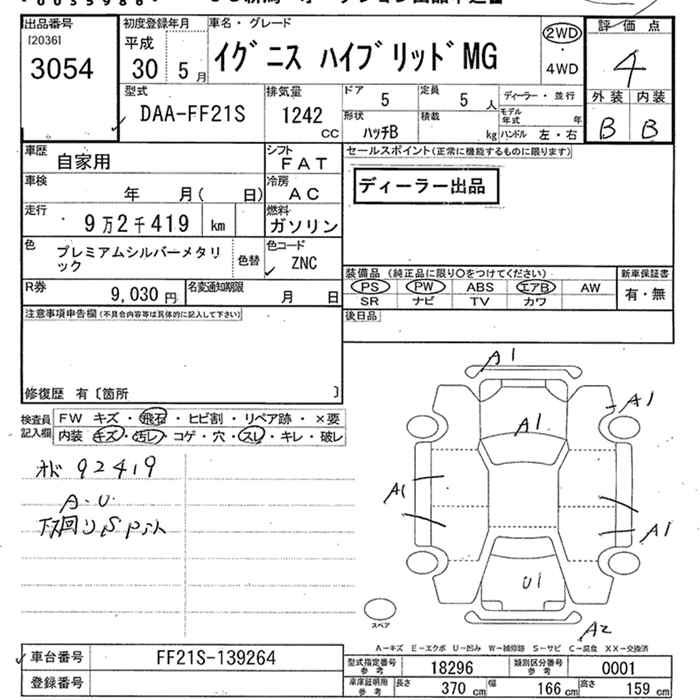 出品番号 [2036]
3054
初度登録年月
平成
30 5月
車名・グレード
イグニス ハイブリッドMG
2WD
4WD
評価点
4
外装 内装
B B
型式
DAA-FF21S
排気量
1242 CC
ドア 5
定員 5人
形状 ハッチB
積載 kg
ディーラー・並行
モデル年式 年
ハンドル 左・右
車歴 自家用
シフト FAT
車検 年 月( 日)
冷房 AC
走行 9万2千419 km
燃料 ガソリン
色 プレミアムシルバーメタリック
色替
色コード ZNC
R券 9,030円
名変通知期限 月 日
セールスポイント(正常に機能するものに限ります)
ディーラー出品
装備品(純正品に限り○をつけてください)
PS PW ABS エアB AW
SR ナビ TV カワ
新車保証書
有・無
後日品
注意事項申告欄(不具合内容等は具体的に記入して下さい)
修復歴 有〔箇所 〕
検査員記入欄
FW キズ・飛石・ヒビ割・リペア跡・×要
内装 キズ・汚レ・コゲ・穴・スレ・キレ・破レ
92419
A・U
下回りS
A1
A1
A1
A1
A1
U1
A2
スペア
A-キズ E-エクボ U-凹ミ W-補修跡 S-サビ C-腐食 XX-交換済
車台番号 FF21S-139264
登録番号
型式指定番号参考 18296
類別区分番号参考 0001
車庫証明用参考 長さ 370 cm 幅 166 cm 高さ 159 cm